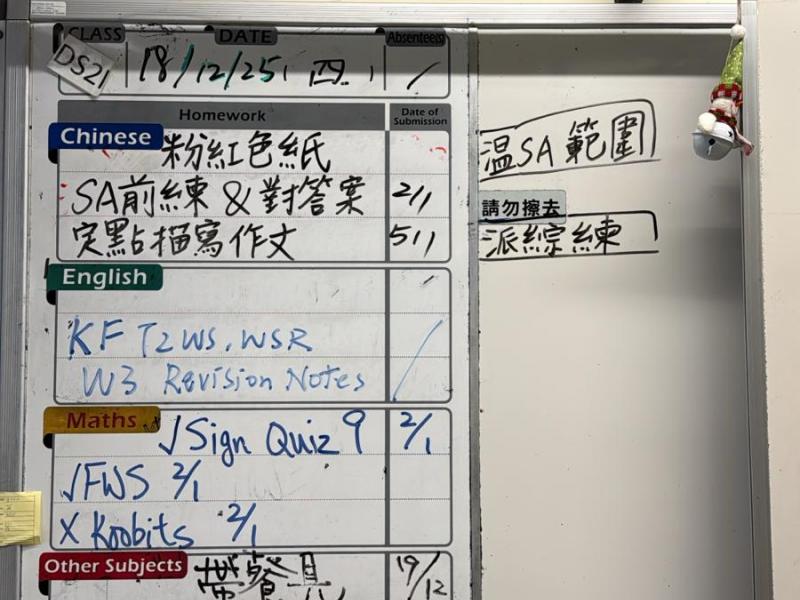 CLASS DATE Absentee(s)
DS21 18/12/25, 四 /
Homework Date of Submission
Chinese 粉紅色紙
SA前練 & 對答案 2/1
定點描寫作文 5/1
English
KF T2 WS, WSR
W3 Revision Notes /
Maths √ Sign Quiz 9 2/1
√ FWS 2/1
X Koobits 2/1
Other Subjects 帶餐具 19/12
溫SA範圍
請勿擦去
派綜練